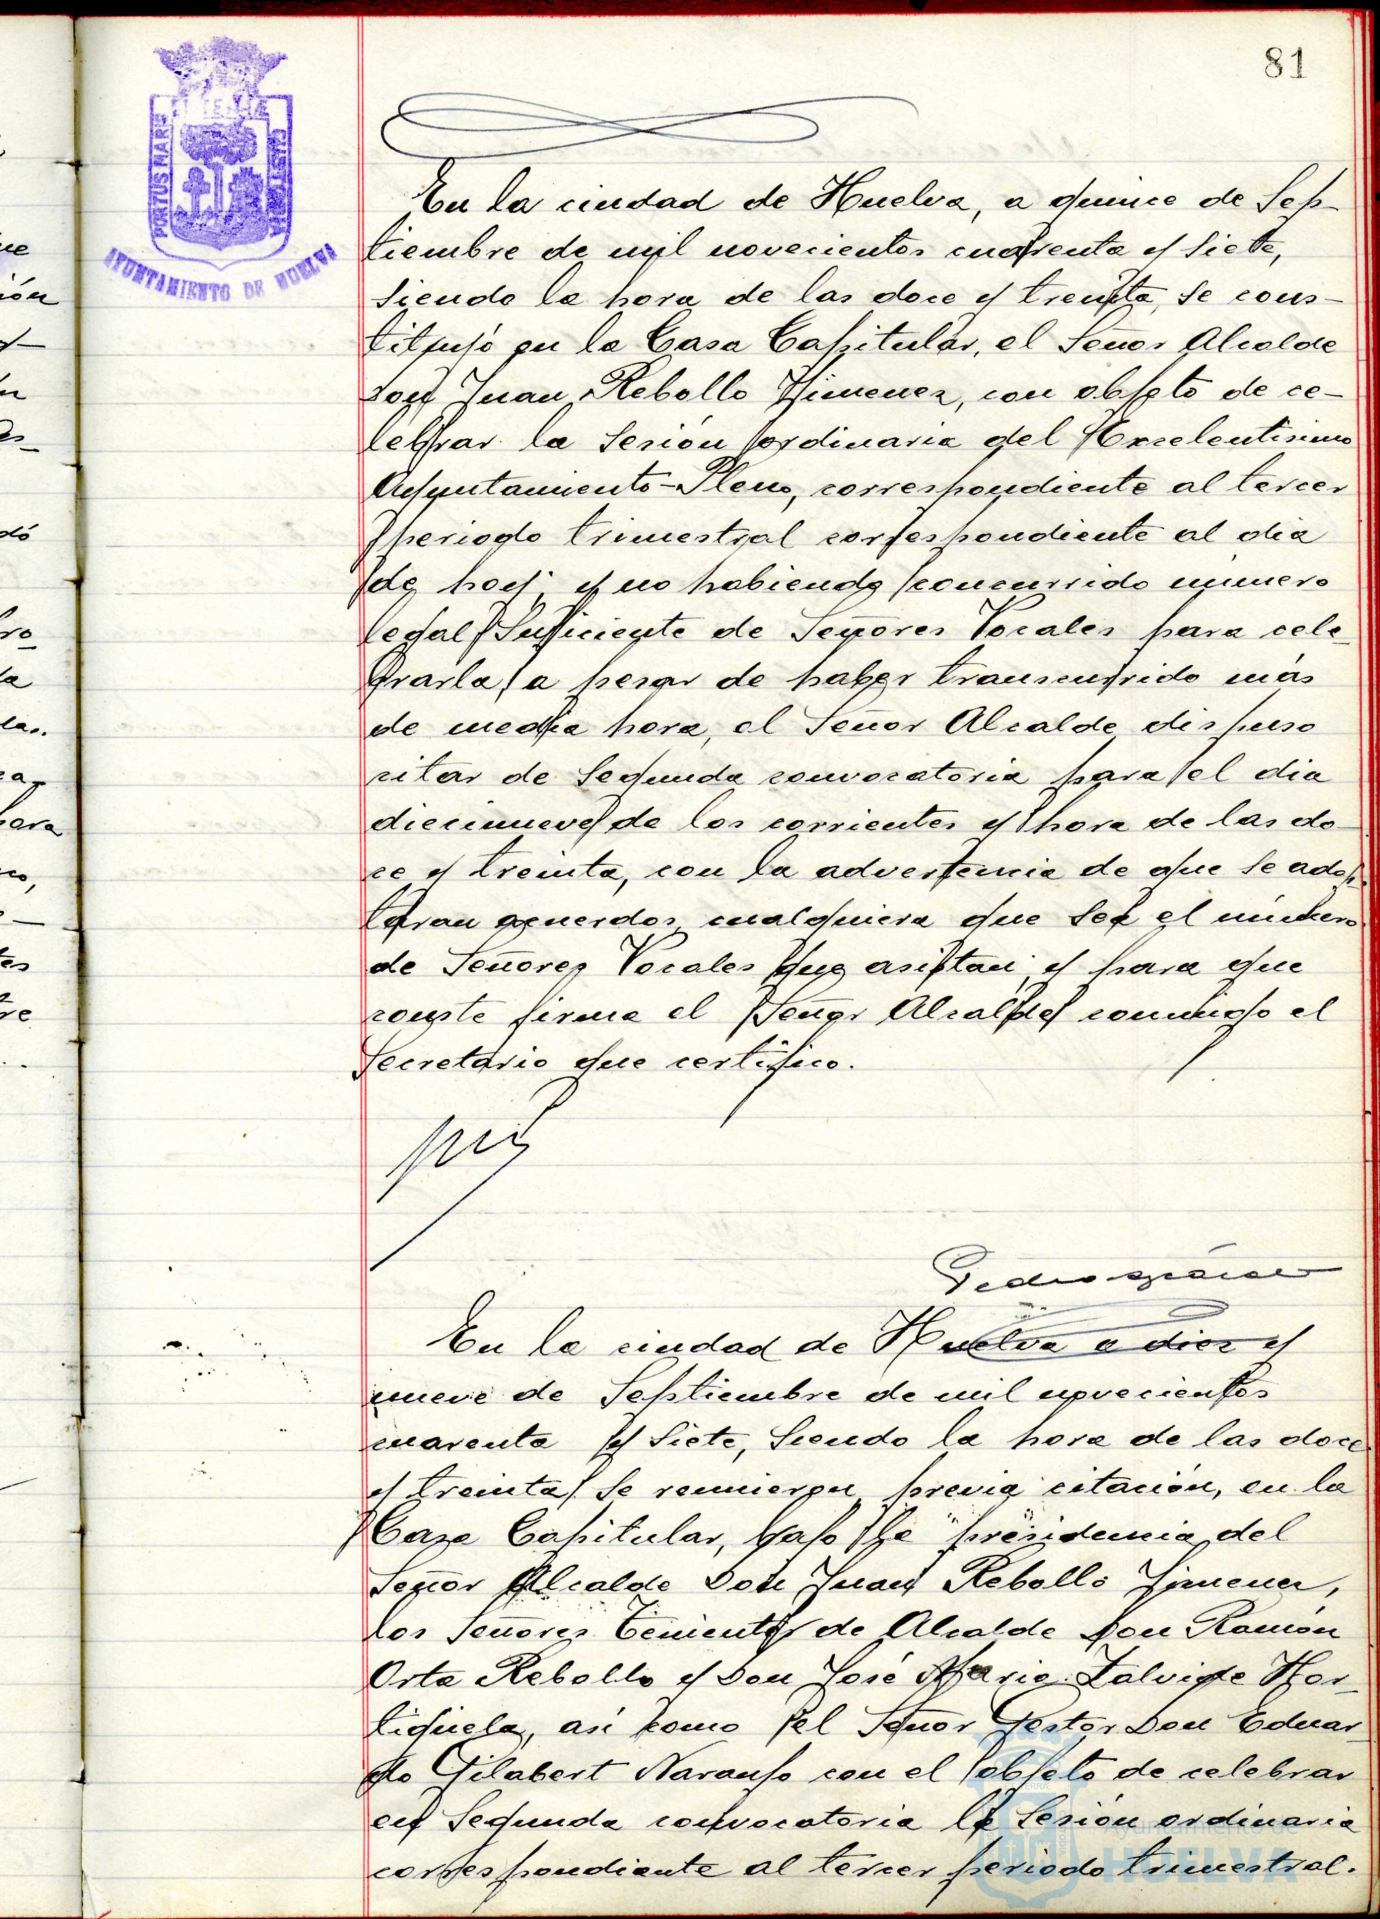 81
PORTUS MARIS
AYUNTAMIENTO DE HUELVA
En la ciudad de Huelva, a quince de Sep-
tiembre de mil novecientos cuarenta y siete,
siendo la hora de las doce y treinta, se cons-
tituyó en la Casa Capitular, el Señor Alcalde
Don Juan Rebollo Jimenez, con objeto de ce-
lebrar la sesión ordinaria del Excelentisimo
Ayuntamiento-Pleno, correspondiente al tercer
periodo trimestral correspondiente al dia
de hoy; y no habiendo concurrido número
legal suficiente de Señores Vocales para cele-
brarla, a pesar de haber transcurrido más
de media hora, el Señor Alcalde, dispuso
citar de segunda convocatoria para el dia
diecinueve de los corrientes y hora de las do-
ce y treinta, con la advertencia de que se adop-
taran acuerdos cualquiera que sea el número
de Señores Vocales que asistan; y para que
conste firma el Señor Alcalde conmigo el
Secretario que certifico.
En la ciudad de Huelva a diez y
nueve de Septiembre de mil novecientos
cuarenta y siete, siendo la hora de las doce
y treinta, se reunieron, previa citación, en la
Casa Capitular, bajo la presidencia del
Señor Alcalde Don Juan Rebollo Jimenez,
los Señores Tenientes de Alcalde Don Ramón
Orta Rebollo y Don José Maria Zalvide Hor-
tigüela, así como el Señor Gestor Don Eduar-
do Gilabert Naranjo con el objeto de celebrar
en segunda convocatoria la sesión ordinaria
correspondiente al tercer periodo trimestral.
Ayuntamiento de
HUELVA